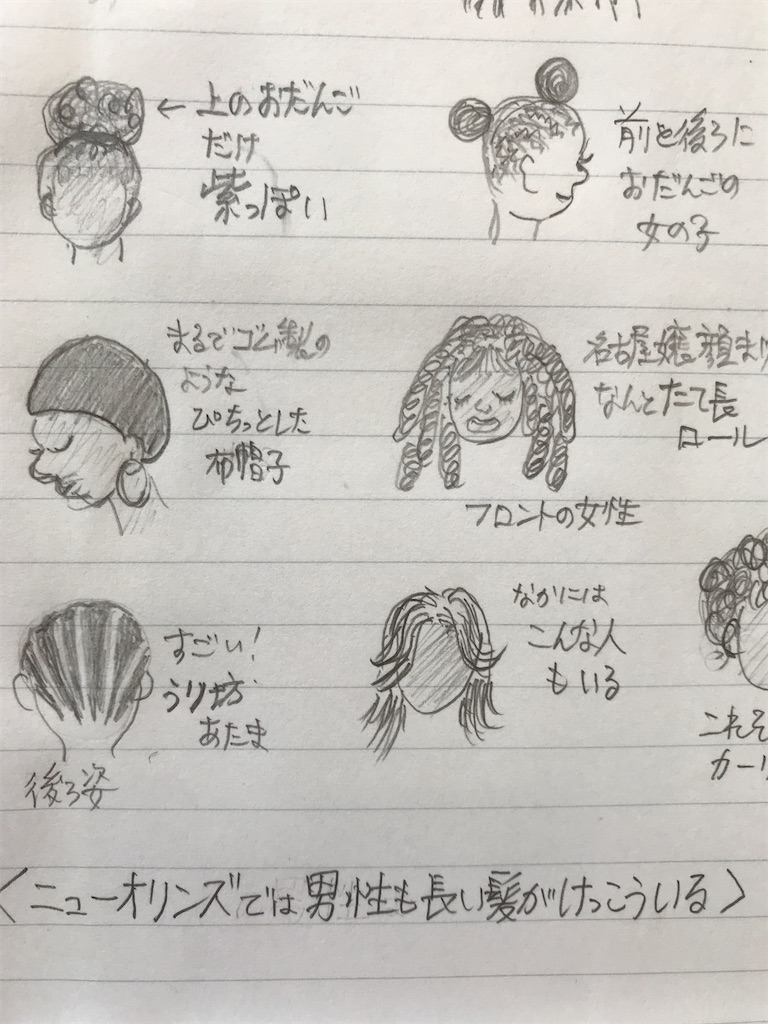 ← 上のおだんご
だけ
紫っぽい
前と後ろに
おだんごの
女の子
まるでゴム製の
ような
ぴちっとした
布帽子
名古屋嬢顔まけ
なんとたて長
ロール
フロントの女性
すごい!
うり坊
あたま
後ろ姿
なかには
こんな人
もいる
これそ
カーリ
〈ニューオリンズでは男性も長い髪がけっこういる〉